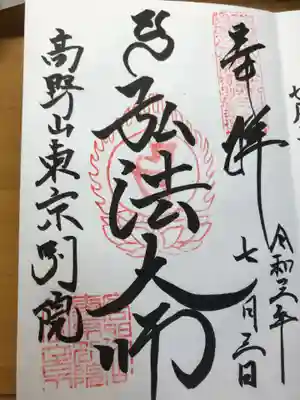 奉拝
令和三年
七月三日
弘法大師
高野山東京別院